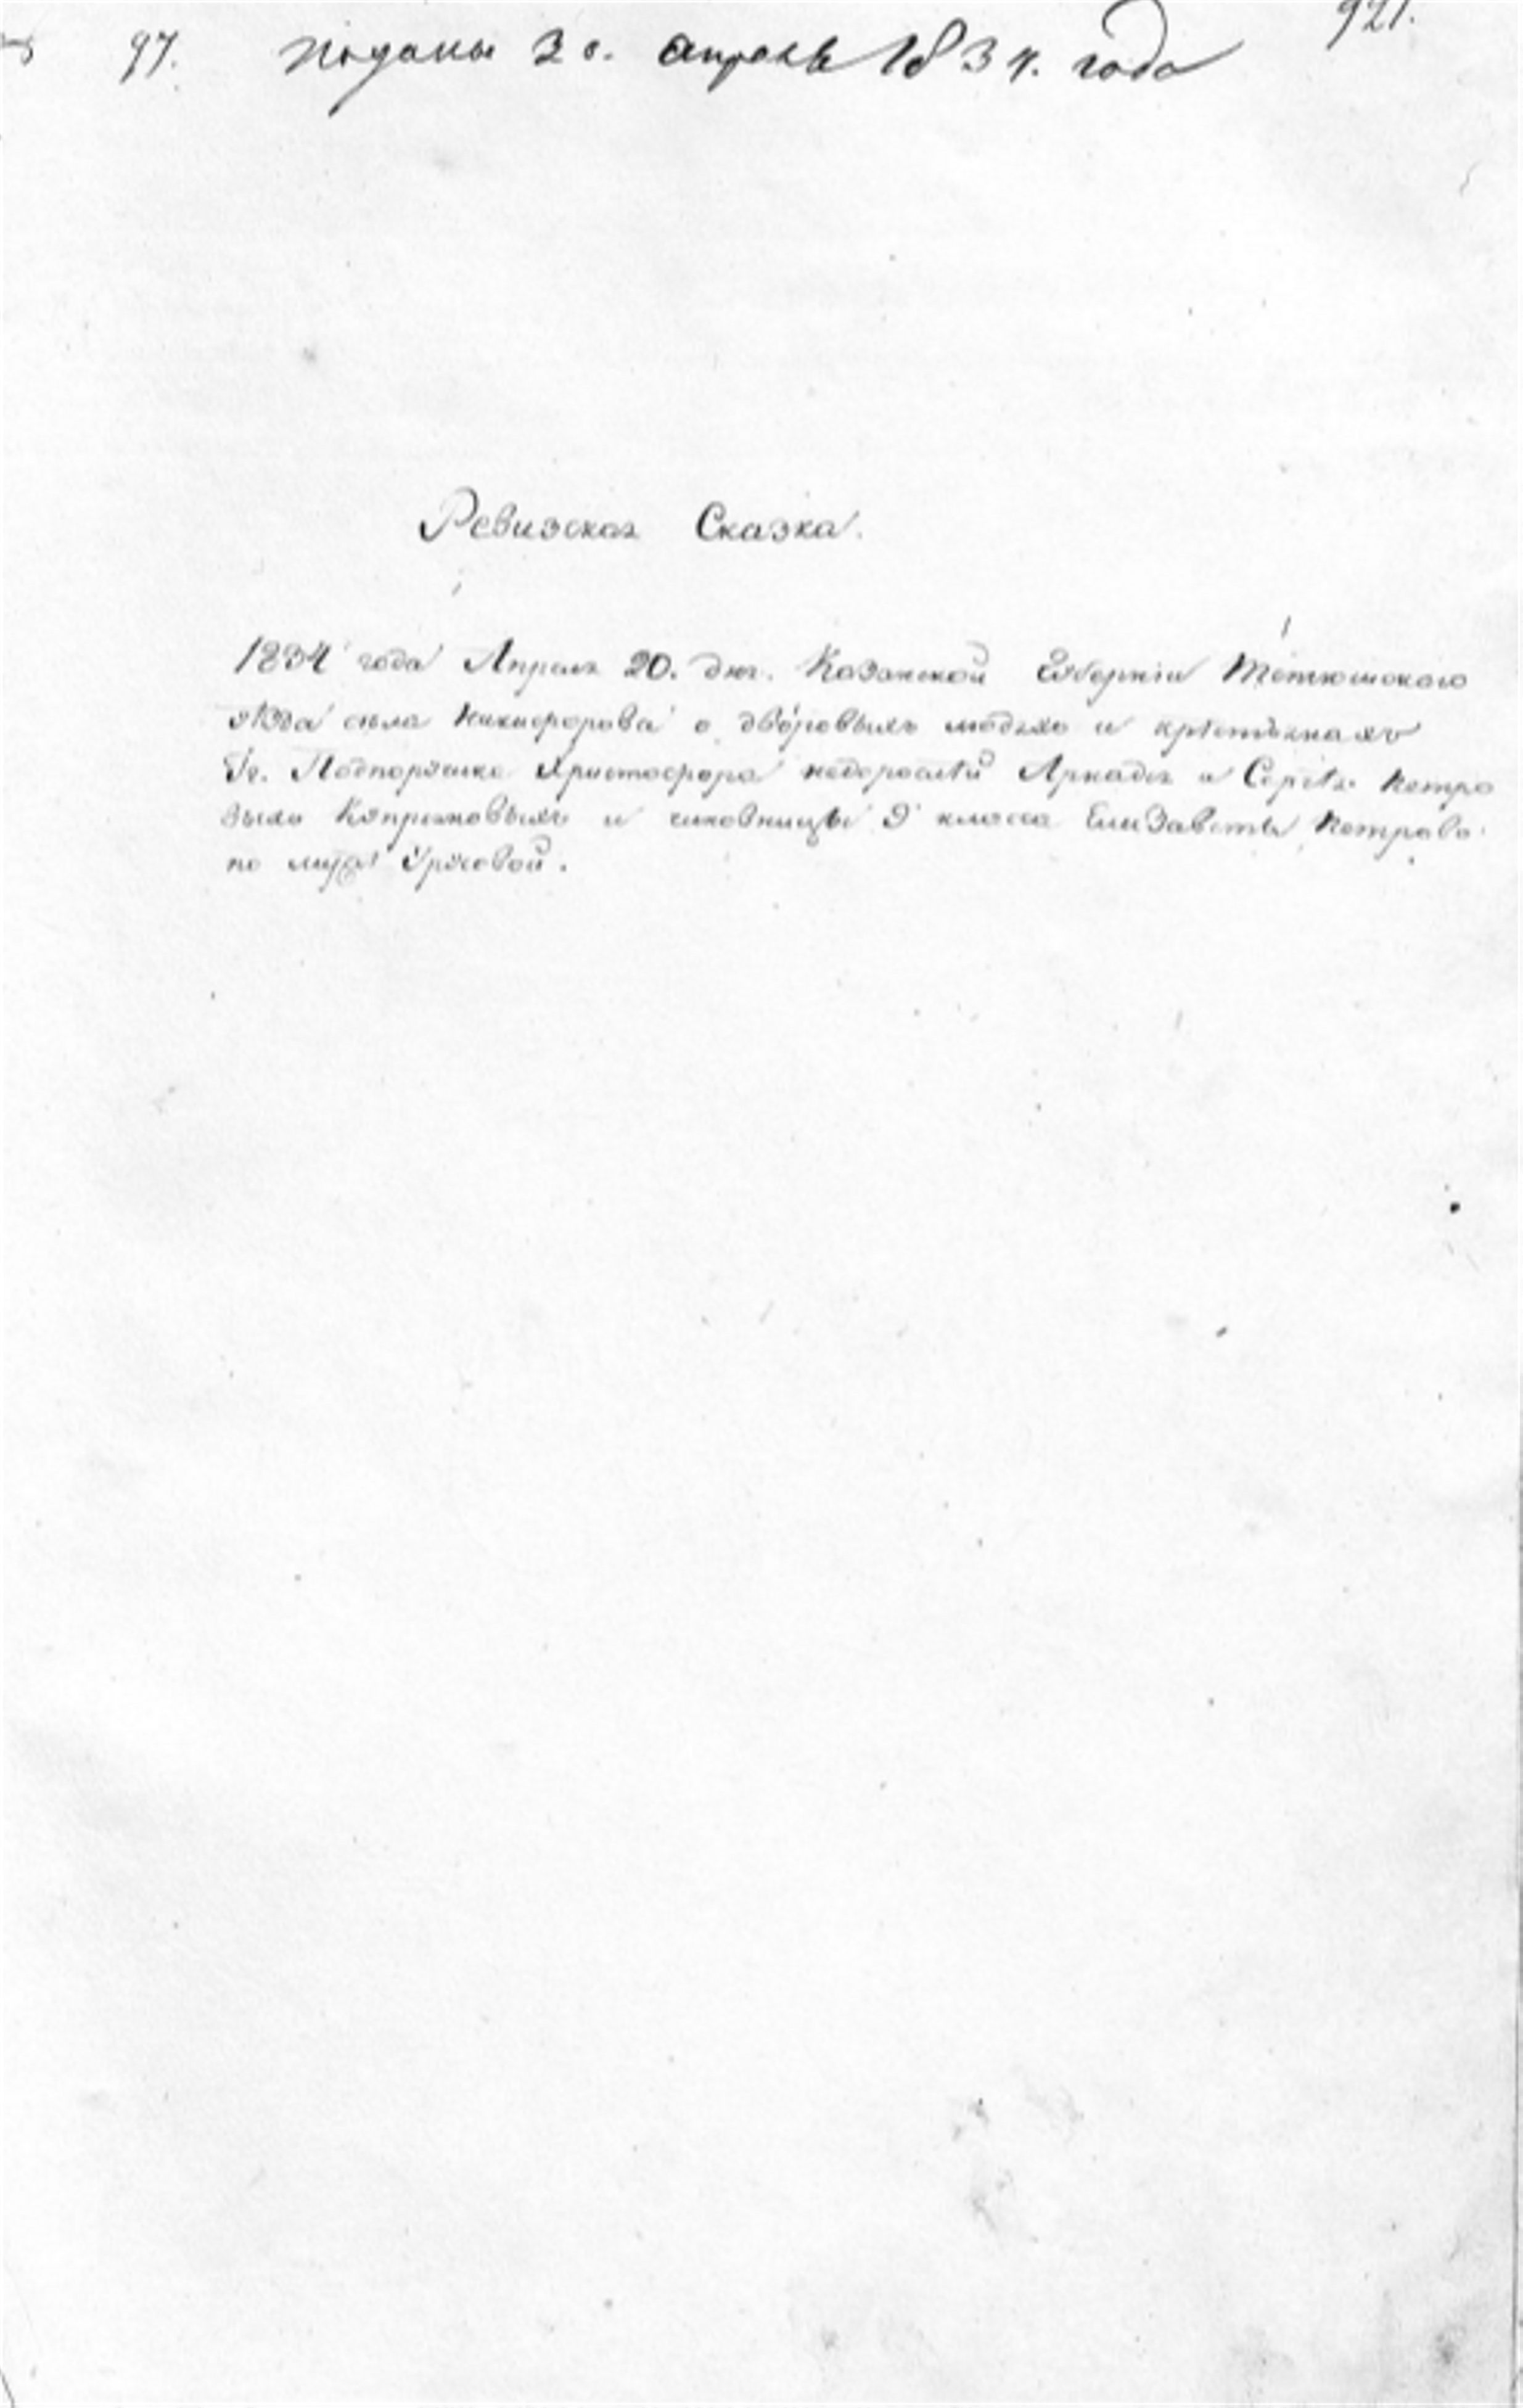 97. поданы 20. апреля 1834. года 921.
Ревизская Сказка.
1834 года Апреля 20. дня. Казанской Губернiи Тетюшского
уѣзда сѣла Никифорова о дворовыхъ людяхъ и крѣстьянахъ
Гг. Подпоручика Христофора недорослей Аркадiя и Сергѣя Петро
выхъ и чиновницы 9 класса Елизаветы Петровой
по мужѣ